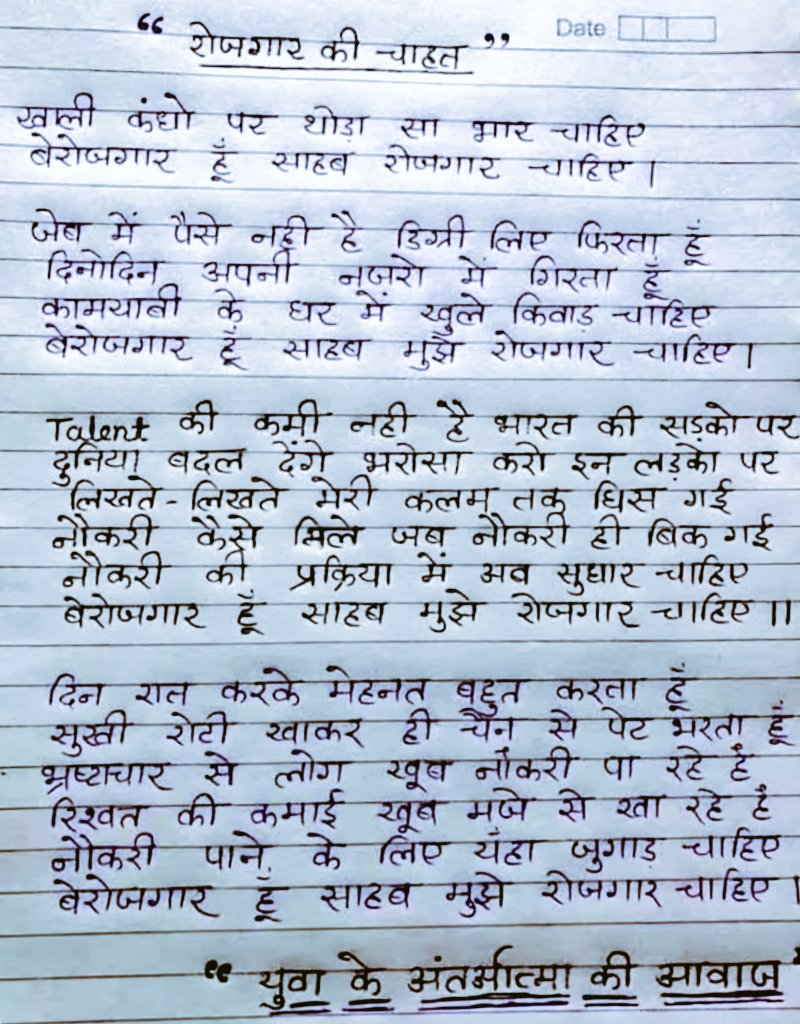 Date
“ रोजगार की चाहत ”
खाली कंधो पर थोड़ा सा भार चाहिए
बेरोजगार हूँ साहब रोजगार चाहिए ।
जेब में पैसे नही है डिग्री लिए फिरता हूँ
दिनोदिन अपनी नजरो में गिरता हूँ
कामयाबी के घर में खुले किवाड़ चाहिए
बेरोजगार हूँ साहब मुझे रोजगार चाहिए ।
Talent की कमी नही है भारत की सड़को पर
दुनिया बदल देंगे भरोसा करो इन लड़को पर
लिखते - लिखते मेरी कलम तक घिस गई
नौकरी कैसे मिले जब नौकरी ही बिक गई
नौकरी की प्रक्रिया में अब सुधार चाहिए
बेरोजगार हूँ साहब मुझे रोजगार चाहिए ॥
दिन रात करके मेहनत बहुत करता हूँ
सुखी रोटी खाकर ही चैन से पेट भरता हूँ
भ्रष्टाचार से लोग खूब नौकरी पा रहे हैं
रिश्वत की कमाई खूब मजे से खा रहे हैं
नौकरी पाने के लिए यँहा जुगाड़ चाहिए
बेरोजगार हूँ साहब मुझे रोजगार चाहिए ।
“ युवा के अंतर्मात्मा की आवाज ”